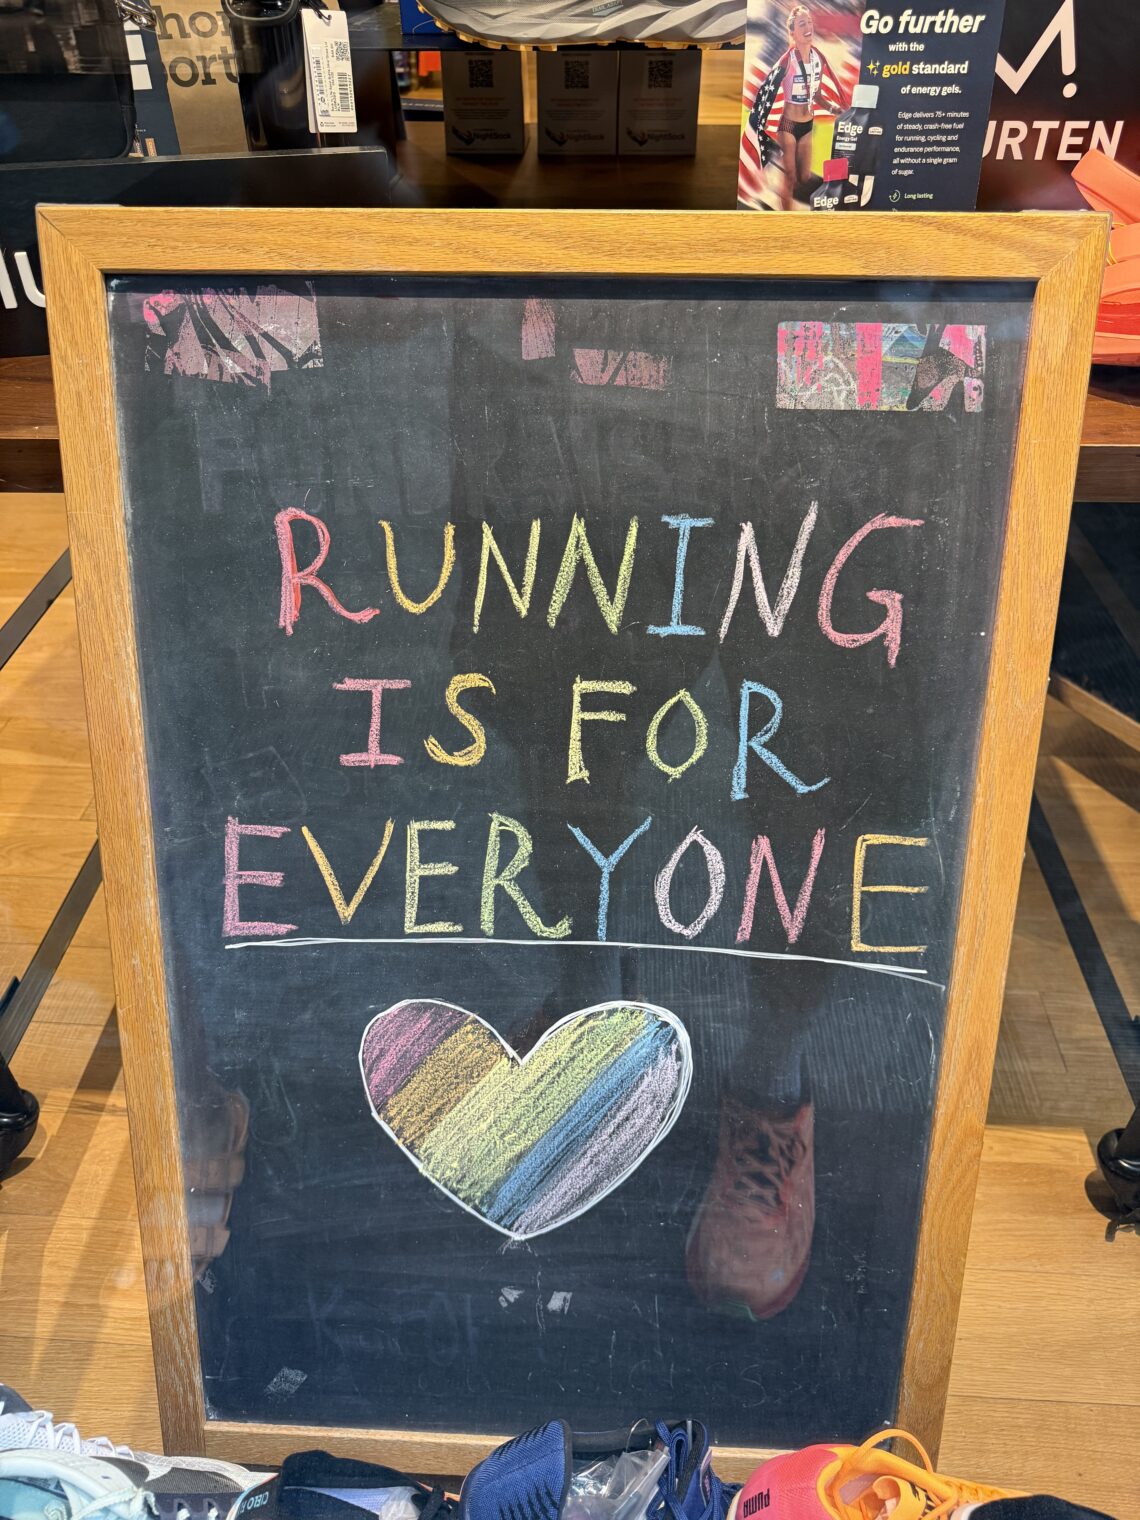 Go further
with the
gold standard
of energy gels.
Edge delivers 75+ minutes
of steady, crash-free fuel
for running, cycling and
endurance performance,
all without a single gram
of sugar.
Long lasting
Edge
Edge
URTEN
NightSock
NightSock
NightSock
RUNNING
IS FOR
EVERYONE
PUMA